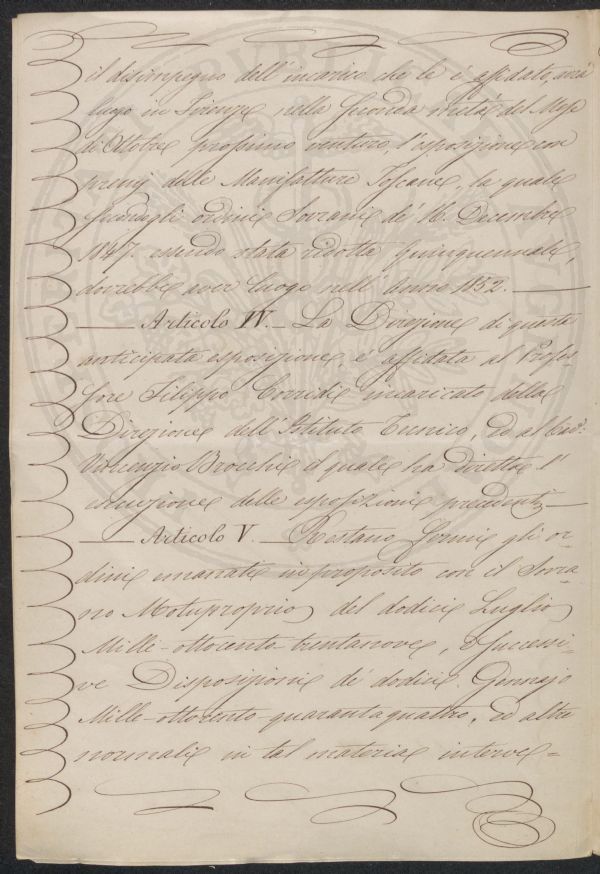 il disimpegno dell'incarico che le è affidato, avrà
luogo in Firenze nella seconda metà del Mese
di Ottobre prossimo venturo, l'esposizione con
premj delle Manifatture Toscane, la quale
secondo gli ordini Sovrani de' 16. Decembre
1847. essendo stata ridotta quinquennale,
dovrebbe aver luogo nell'Anno 1852. —
— Articolo IV. — La Direzione di questa
anticipata esposizione, è affidata al Profes-
sore Filippo Corridi incaricato della
Direzione dell'Istituto Tecnico, ed al Cav:
Vincenzio Brocchi il quale ha diretta l'
esecuzione delle esposizioni precedenti —
— Articolo V. — Restano fermi gli or-
dini emanati in proposito con il Sovra-
no Motuproprio del dodici Luglio
Mille-ottocento-trentanove, e successi-
ve Disposizioni de' dodici Gennajo
Mille-ottocento-quarantaquattro, ed altre
normali in tal materia interve=